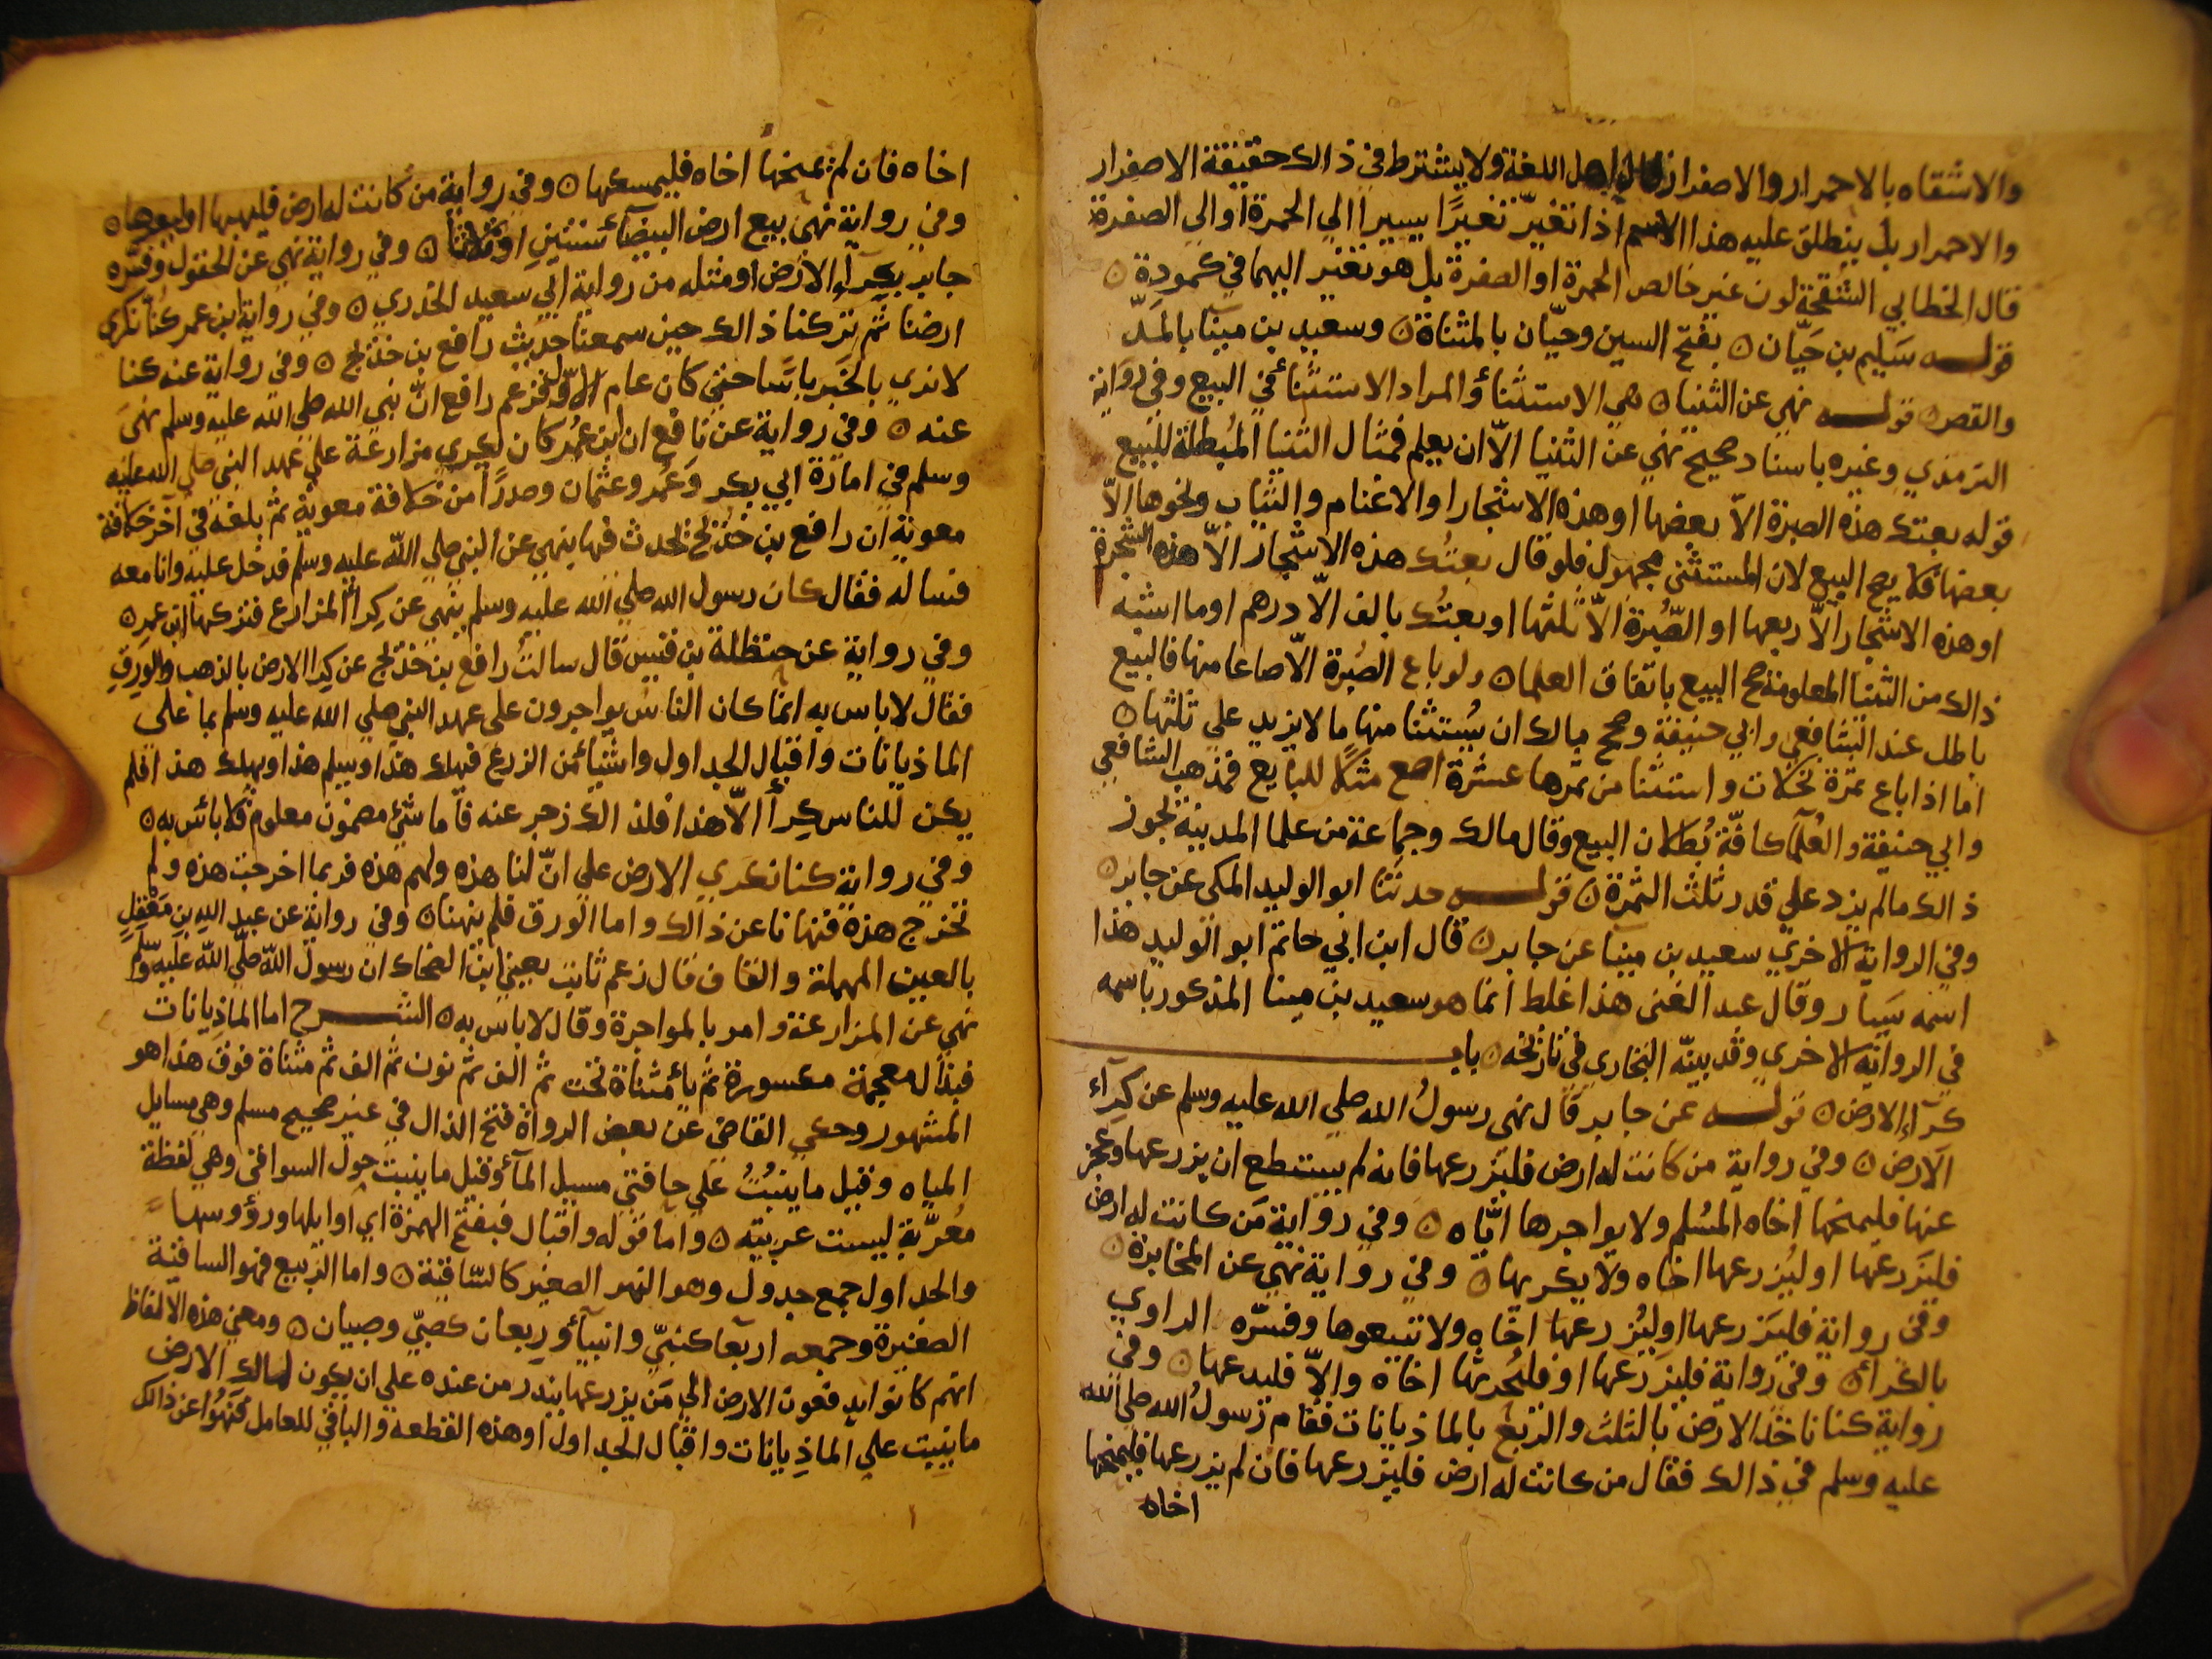 والاشقاه بالاحمرار والاصفرار قال اهل اللغة ولا يشترط في ذالك حقيقة الاصفرار
والاحمرار بل ينطلق عليه هذا الاسم اذا تغيّر تغيرًا يسيرا الي الحمرة او الي الصفرة
قال الخطابي الشقحة لون غير خالص الحمرة او الصفرة بل هو تغير اليهما في كمودة ه
قولــه سَليم بن حَيّان ه بفتح السين وحيّان بالمثناة ه وسعيد بن مينآ بالمَدّ
والقصر ه قولــه نهي عن الثنيا ه هي الاستثنأ والمراد الاستثنأ في البيع وفي رواية
الترمذي وغيره باسناد صحيح نهي عن الثنيا الّا ان يعلم فمثال الثنيا المُبطلة للبيع
قوله بعتك هذه الصبرة الّا بعضها او هذه الاشجار او الاغنام والثياب ونحوها الّا
بعضها فلا يصح البيع لان المستثني مجهول فلو قال بعتُك هذه الاشجار الّا هذه الشجرة
او هذه الاشجار الّا ربعها او الصُّبرة الّا ثلثها او بعتُك بالف الّا درهم او ما اشبه
ذالك من الثنيا المعلومة صح البيع باتفاق العلما ه ولو باع الصُبرة الّا صاعا منها فالبيع
باطل عند الشافعي وابي حنيفة وصحح مالك ان يُستثنا منها ما لا يزيد علي ثلثها ه
اما اذا باع ثمرة نخلات واستثنا من ثمرها عشرة اصع مثلًا للبايع فمذهب الشافعي
وابي حنيفة والعُلمآ كافّة بُطلان البيع وقال مالك وجماعة من علما المدينة يجوز
ذالك ما لم يزد علي قدر ثلث الثمرة ه قولــه حدثنا ابو الوليد المكي عن جابر ه
وفي الرواية الاخري سعيد بن مينآ عن جابر ه قال ابن ابي حاتم ابو الوليد هذا
اسمه يَسار وقال عبد الغني هذا غلط انما هو سعيد بن مينا المذكور باسمه
في الرواية الاخري وقد بينّه البخاري في تاريخه ه باب
كرآء الارض ه قولــه عن جابر قال نهي رسولُ الله صلي الله عليه وسلم عن كِرآء
الارض ه وفي رواية من كانت له ارض فليزرعها فانه لم يستطع ان يزرعها وعجز
عنها فليمنحها اخاه المُسلم ولا يواجرها ايّاه ه وفي رواية مَن كانت له ارض
فليَزرعها او ليُزرعها اخاه ولا يكريها ه وفي رواية نهي عن المخابرة ه
وفي رواية فليَزرعها او ليُزرعها اخاه ولا تبيعوها وفسّره الراوي
بالكرأ ه وفي رواية فليزرعها او فليُحرثها اخاه والّا فليدعها ه وفي
رواية كنا ناخذ الارض بالثلث والربع بالماذيانات فقام رسولُ الله صلي الله
عليه وسلم في ذالك فقال من كانت له ارض فليزرعها فان لم يزرعها فليمنحها
اخاه
اخاه فان لم يمنحها اخاه فليمسكها ه وفي رواية من كانت له ارض فليهبها او ليعرها ه
وفي رواية نهي بيع ارض البيضآ سنتين او ثلاثا ه وفي رواية نهي عن الحقول وفسّره
جابر بكرآء الارض ومثله من رواية ابي سعيد الخدري ه وفي رواية ابن عمر كنّا نكري
ارضنا ثم تركنا ذالك حين سمعنا حديث رافع بن خديج ه وفي رواية عنه كنا
لا نري بالخَبر باسًا حتي كان عام الاول فزعم رافع انّ نبي الله صلي الله عليه وسلم نهيَ
عنه ه وفي رواية عن نافع ان ابن عُمر كان يكري مزارعَة علي عهد النبي صلي الله عليه
وسلم في امارة ابي بكر وَعُمر وعثمان وصدرًا من خلافة معوية ثم بلغه في آخر خلافة
معوية ان رافع بن خديج يحدث فيها بنهي عن النبي صلي الله عليه وسلم فدخل عليه وانا معه
فساله فقال كان رسول الله صلي الله عليه وسلم ينهي عن كِرأ المزارع فتركها ابن عمر ه
وفي رواية عن حنظلة بن قيس قال سالتُ رافع بن خديج عن كرا الارض بالذهب والورِق
فقال لا باس به انما كان الناسُ يواجرون علي عهد النبي صلي الله عليه وسلم بما علي
الماذيانات واقبال الجداول واشيأ من الزرع فيهلك هذا ويسلم هذا ويهلك هذا فلم
يكن للناس كِرأ الّا هذا فلذالك زجر عنه فاما شئ مضمون معلوم فلا باس به ه
وفي رواية كنا نكري الارض علي انّ لنا هذه ولهم هذه فربما اخرجت هذه ولم
تخرج هذه فنهانا عن ذالك واما الورق فلم ينهنا ه وفي رواية عن عبد الله بن مَعْقِلٍ
بالعين المهملة والقاف قال زعم ثابت يعني ابن الضحاك ان رسول الله صلّي الله عليه وسلّم
نهي عن المزارعة وامر بالمواجرة وقال لا باس به ه الشــرح اما الماذيانات
فبذال معجمة مكسورة ثم يأ مثناة تحت ثم الف ثم نون ثم الف ثم مثناة فوق هذا هو
المشهور وحكي القاضي عن بعض الرواة فتح الذال في غير صحيح مسلم وهي مسايل
المياه وقيل ما ينبُتُ علي حافتي مسيل المآ وقيل ما ينبت حول السواقي وهي لفظة
معرّبة ليست عربية ه واما قوله واقبال فبفتح الهمزة اي اوايلها ورؤوسها
والجداول جمع جدول وهو النهر الصغير كالسّاقية ه واما الربيع فهو الساقية
الصغيرة وجمعه اربعا كنبيّ وانبيآ وربعان كصبيّ وصبيان ه ومعني هذه الالفاظ
انهم كانوا يدفعون الارض الي مَن يزرعها ببذر من عنده علي ان يكون لمالك الارض
ما ينبت علي الماذِيانات واقبال الجداول او هذه القطعة والباقي للعامل فنهُوا عن ذالك